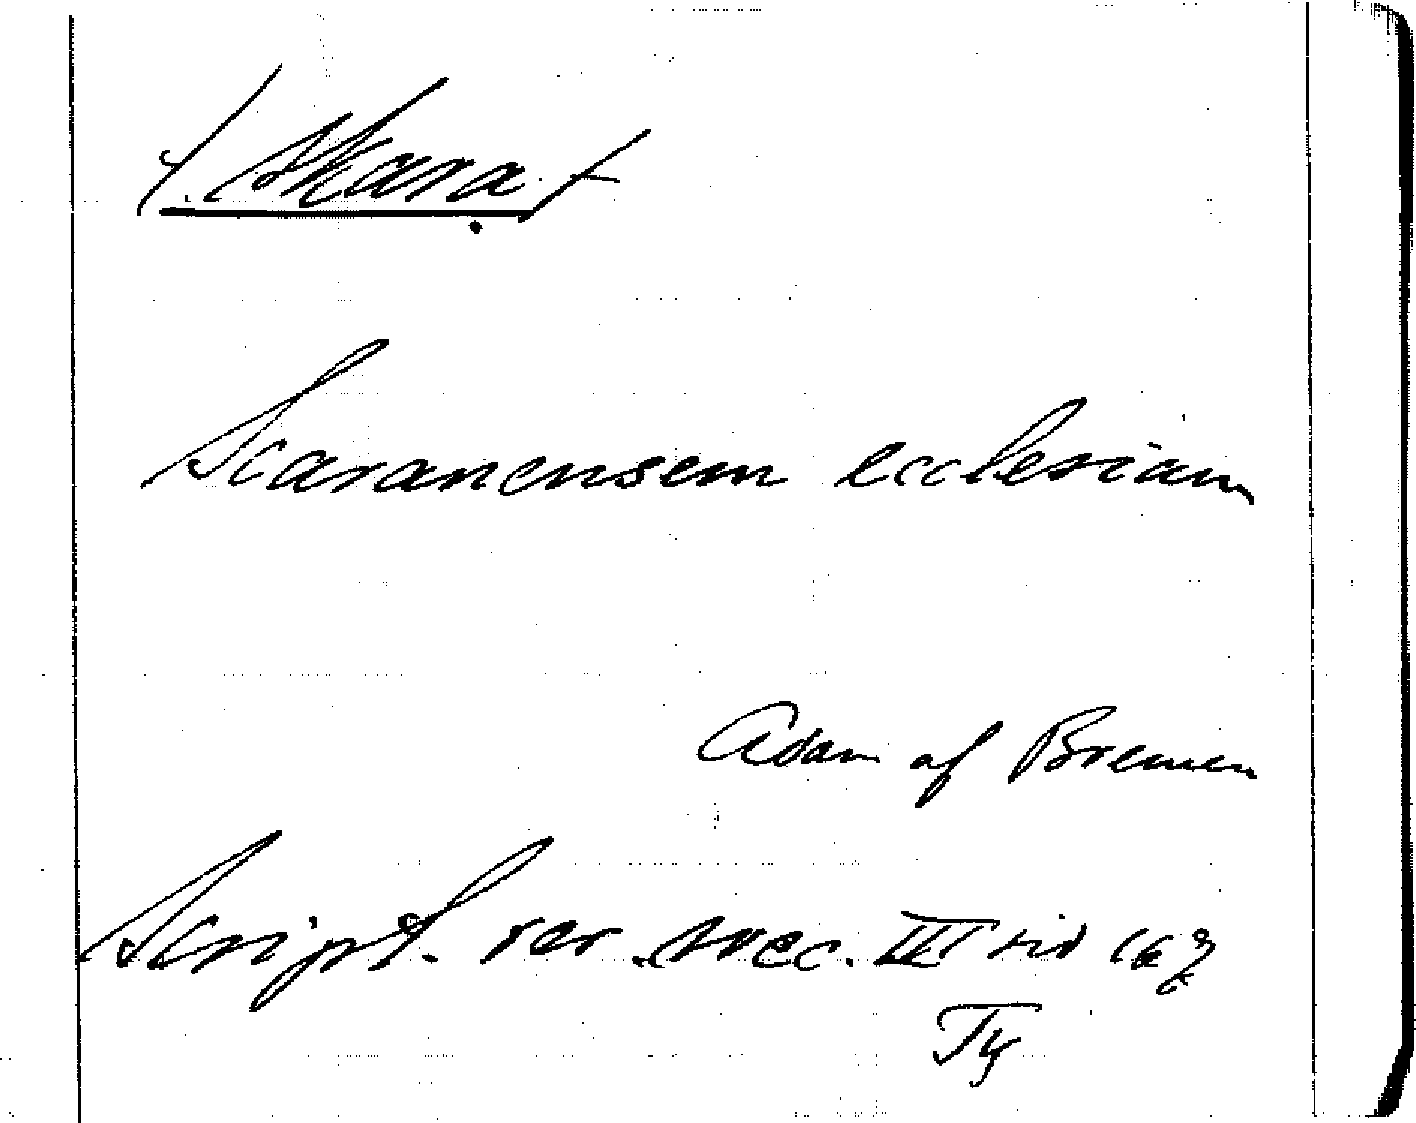 Skara
Scaranensem ecclesiam
Adam af Bremen
Script. rer. svec. III sid
Ty